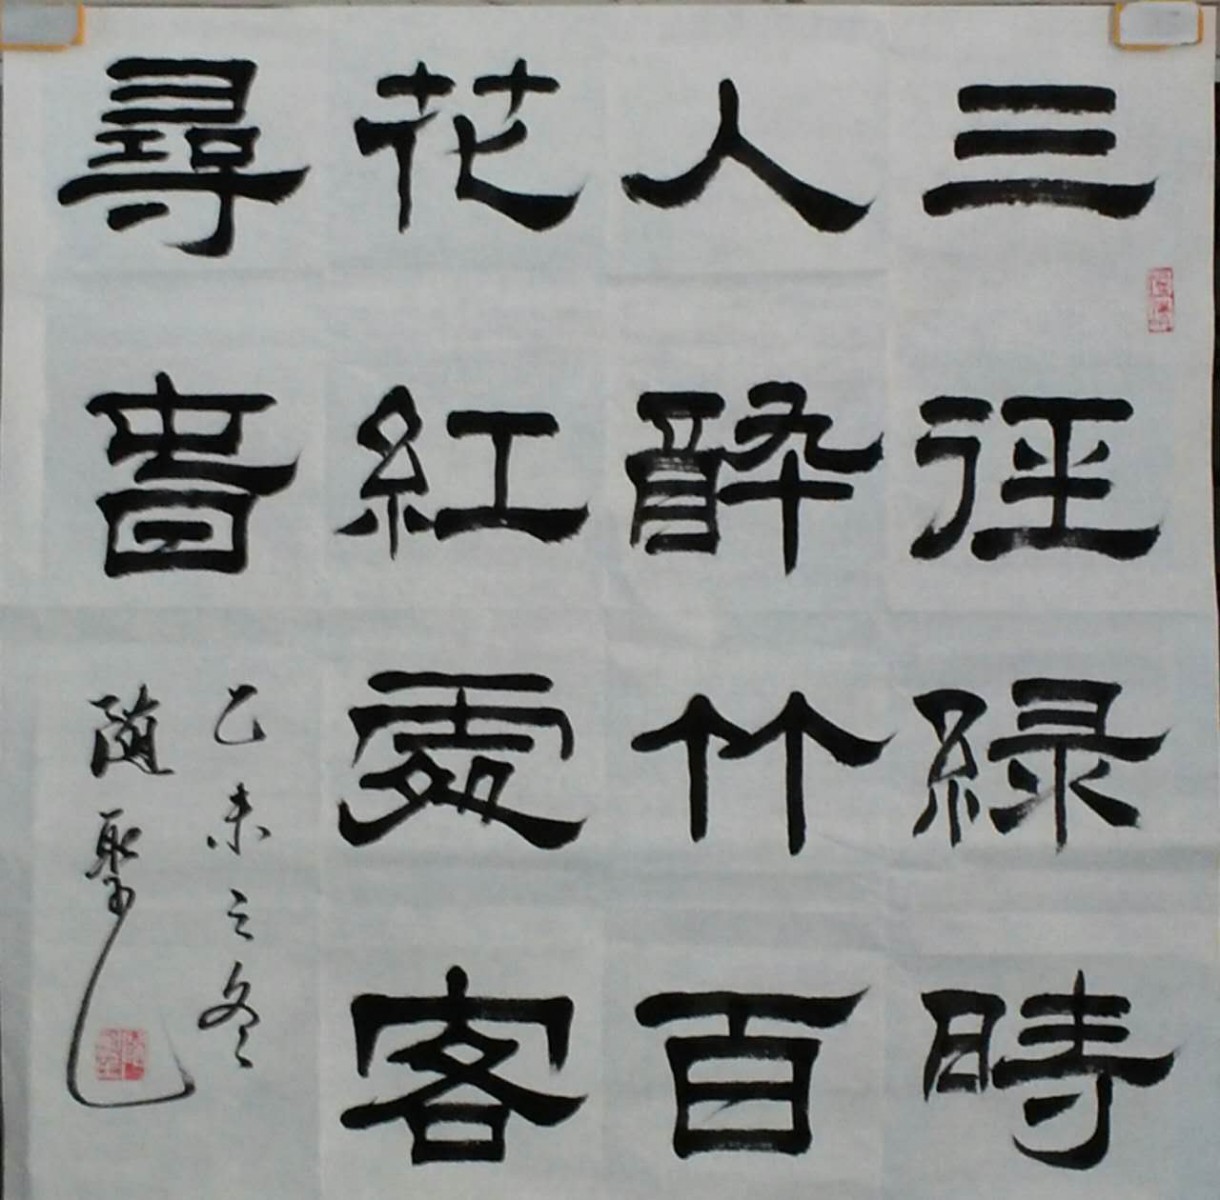 三徑綠時
人醉竹百
花紅處客
尋書
乙未之冬
随聖